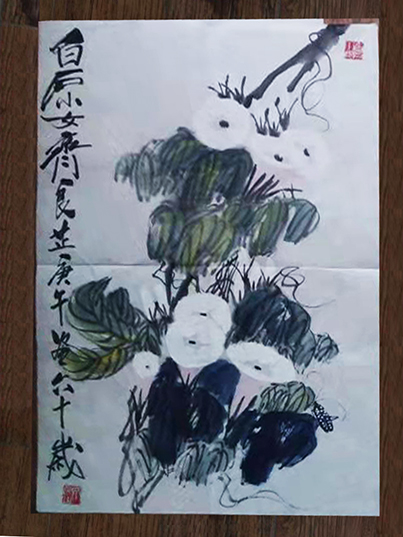 白石小女齊良芷庚午六十歲